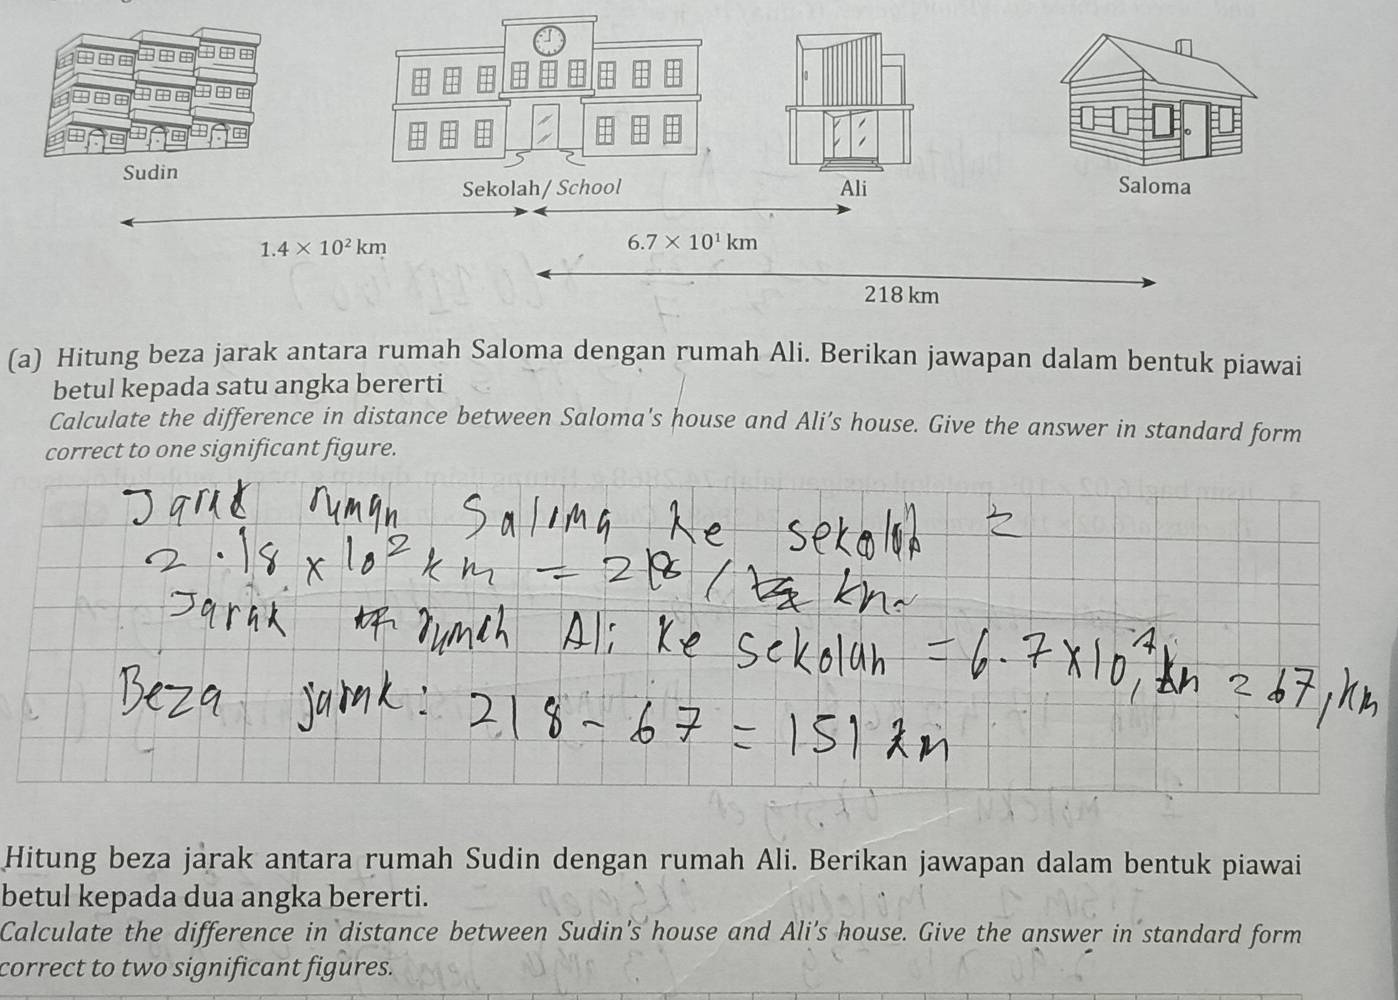 Sudin
Sekolah/ School
Ali
Saloma
1.4 × 10² km
6.7 × 10¹ km
218 km
(a) Hitung beza jarak antara rumah Saloma dengan rumah Ali. Berikan jawapan dalam bentuk piawai
betul kepada satu angka bererti
Calculate the difference in distance between Saloma's house and Ali's house. Give the answer in standard form
correct to one significant figure.
Jarak rumah Saloma ke sekolah =
2.18 × 10² km = 218 km
Jarak rumah Ali ke sekolah = 6.7 × 10¹, km = 67, km
Beza jarak: 218 - 67 = 151 km
Hitung beza jarak antara rumah Sudin dengan rumah Ali. Berikan jawapan dalam bentuk piawai
betul kepada dua angka bererti.
Calculate the difference in distance between Sudin's house and Ali's house. Give the answer in standard form
correct to two significant figures.